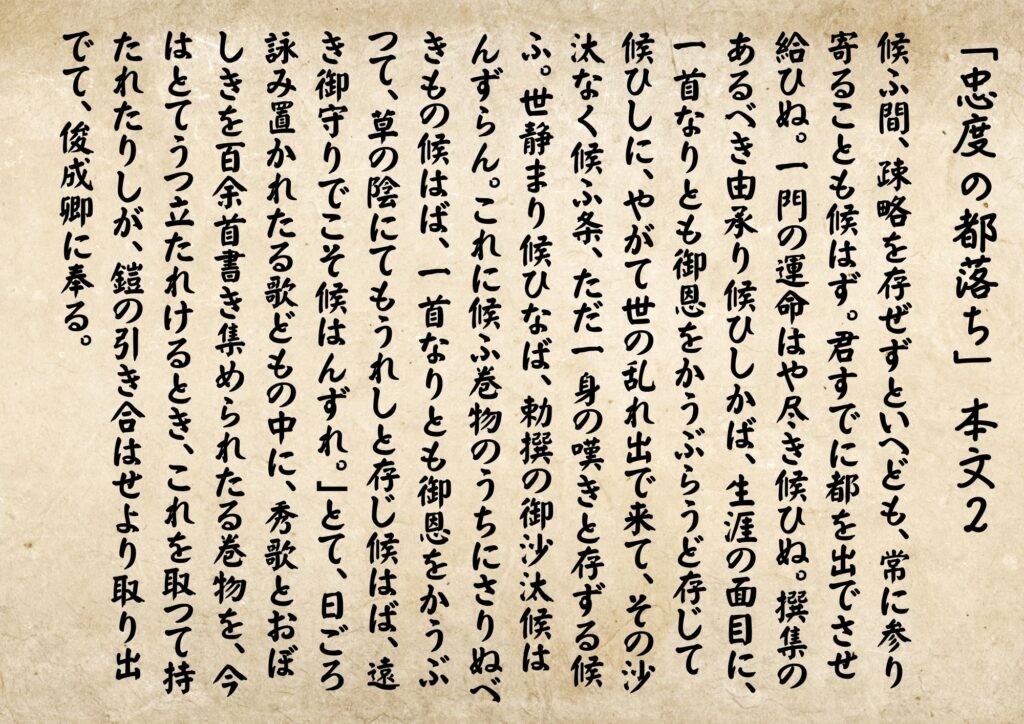 「忠度の都落ち」 本文2
候ふ間、疎略を存ぜずといへども、常に参り
寄ることも候はず。君すでに都を出でさせ
給ひぬ。一門の運命はや尽き候ひぬ。撰集の
あるべき由承り候ひしかば、生涯の面目に、
一首なりとも御恩をかうぶらうど存じて
候ひしに、やがて世の乱れ出で来て、その沙
汰なく候ふ条、ただ一身の嘆きと存ずる候
ふ。世静まり候ひなば、勅撰の御沙汰候は
んずらん。これに候ふ巻物のうちにさりぬべ
きもの候はば、一首なりとも御恩をかうぶ
つて、草の陰にてもうれしと存じ候はば、遠
き御守りでこそ候はんずれ。」とて、日ごろ
詠み置かれたる歌どもの中に、秀歌とおぼ
しきを百余首書き集められたる巻物を、今
はとてうつ立たれけるとき、これを取つて持
たれたりしが、鎧の引き合はせより取り出
でて、俊成卿に奉る。